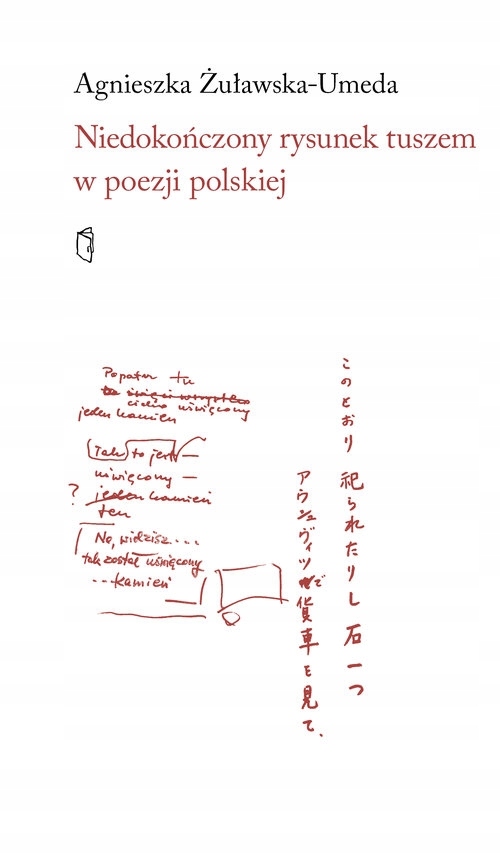 Agnieszka Żuławska-Umeda
Niedokończony rysunek tuszem
w poezji polskiej
Popatrz tu
to święci wszystko
cicho uświęcony
jeden kamień
(Tak) to jest —
uświęcony —
? jeden kamień
ten
No, widzisz...
tak został uświęcony
...kamień
このとおり 祀られたりし 石一つ
アウシュヴィツで貨車を見て.